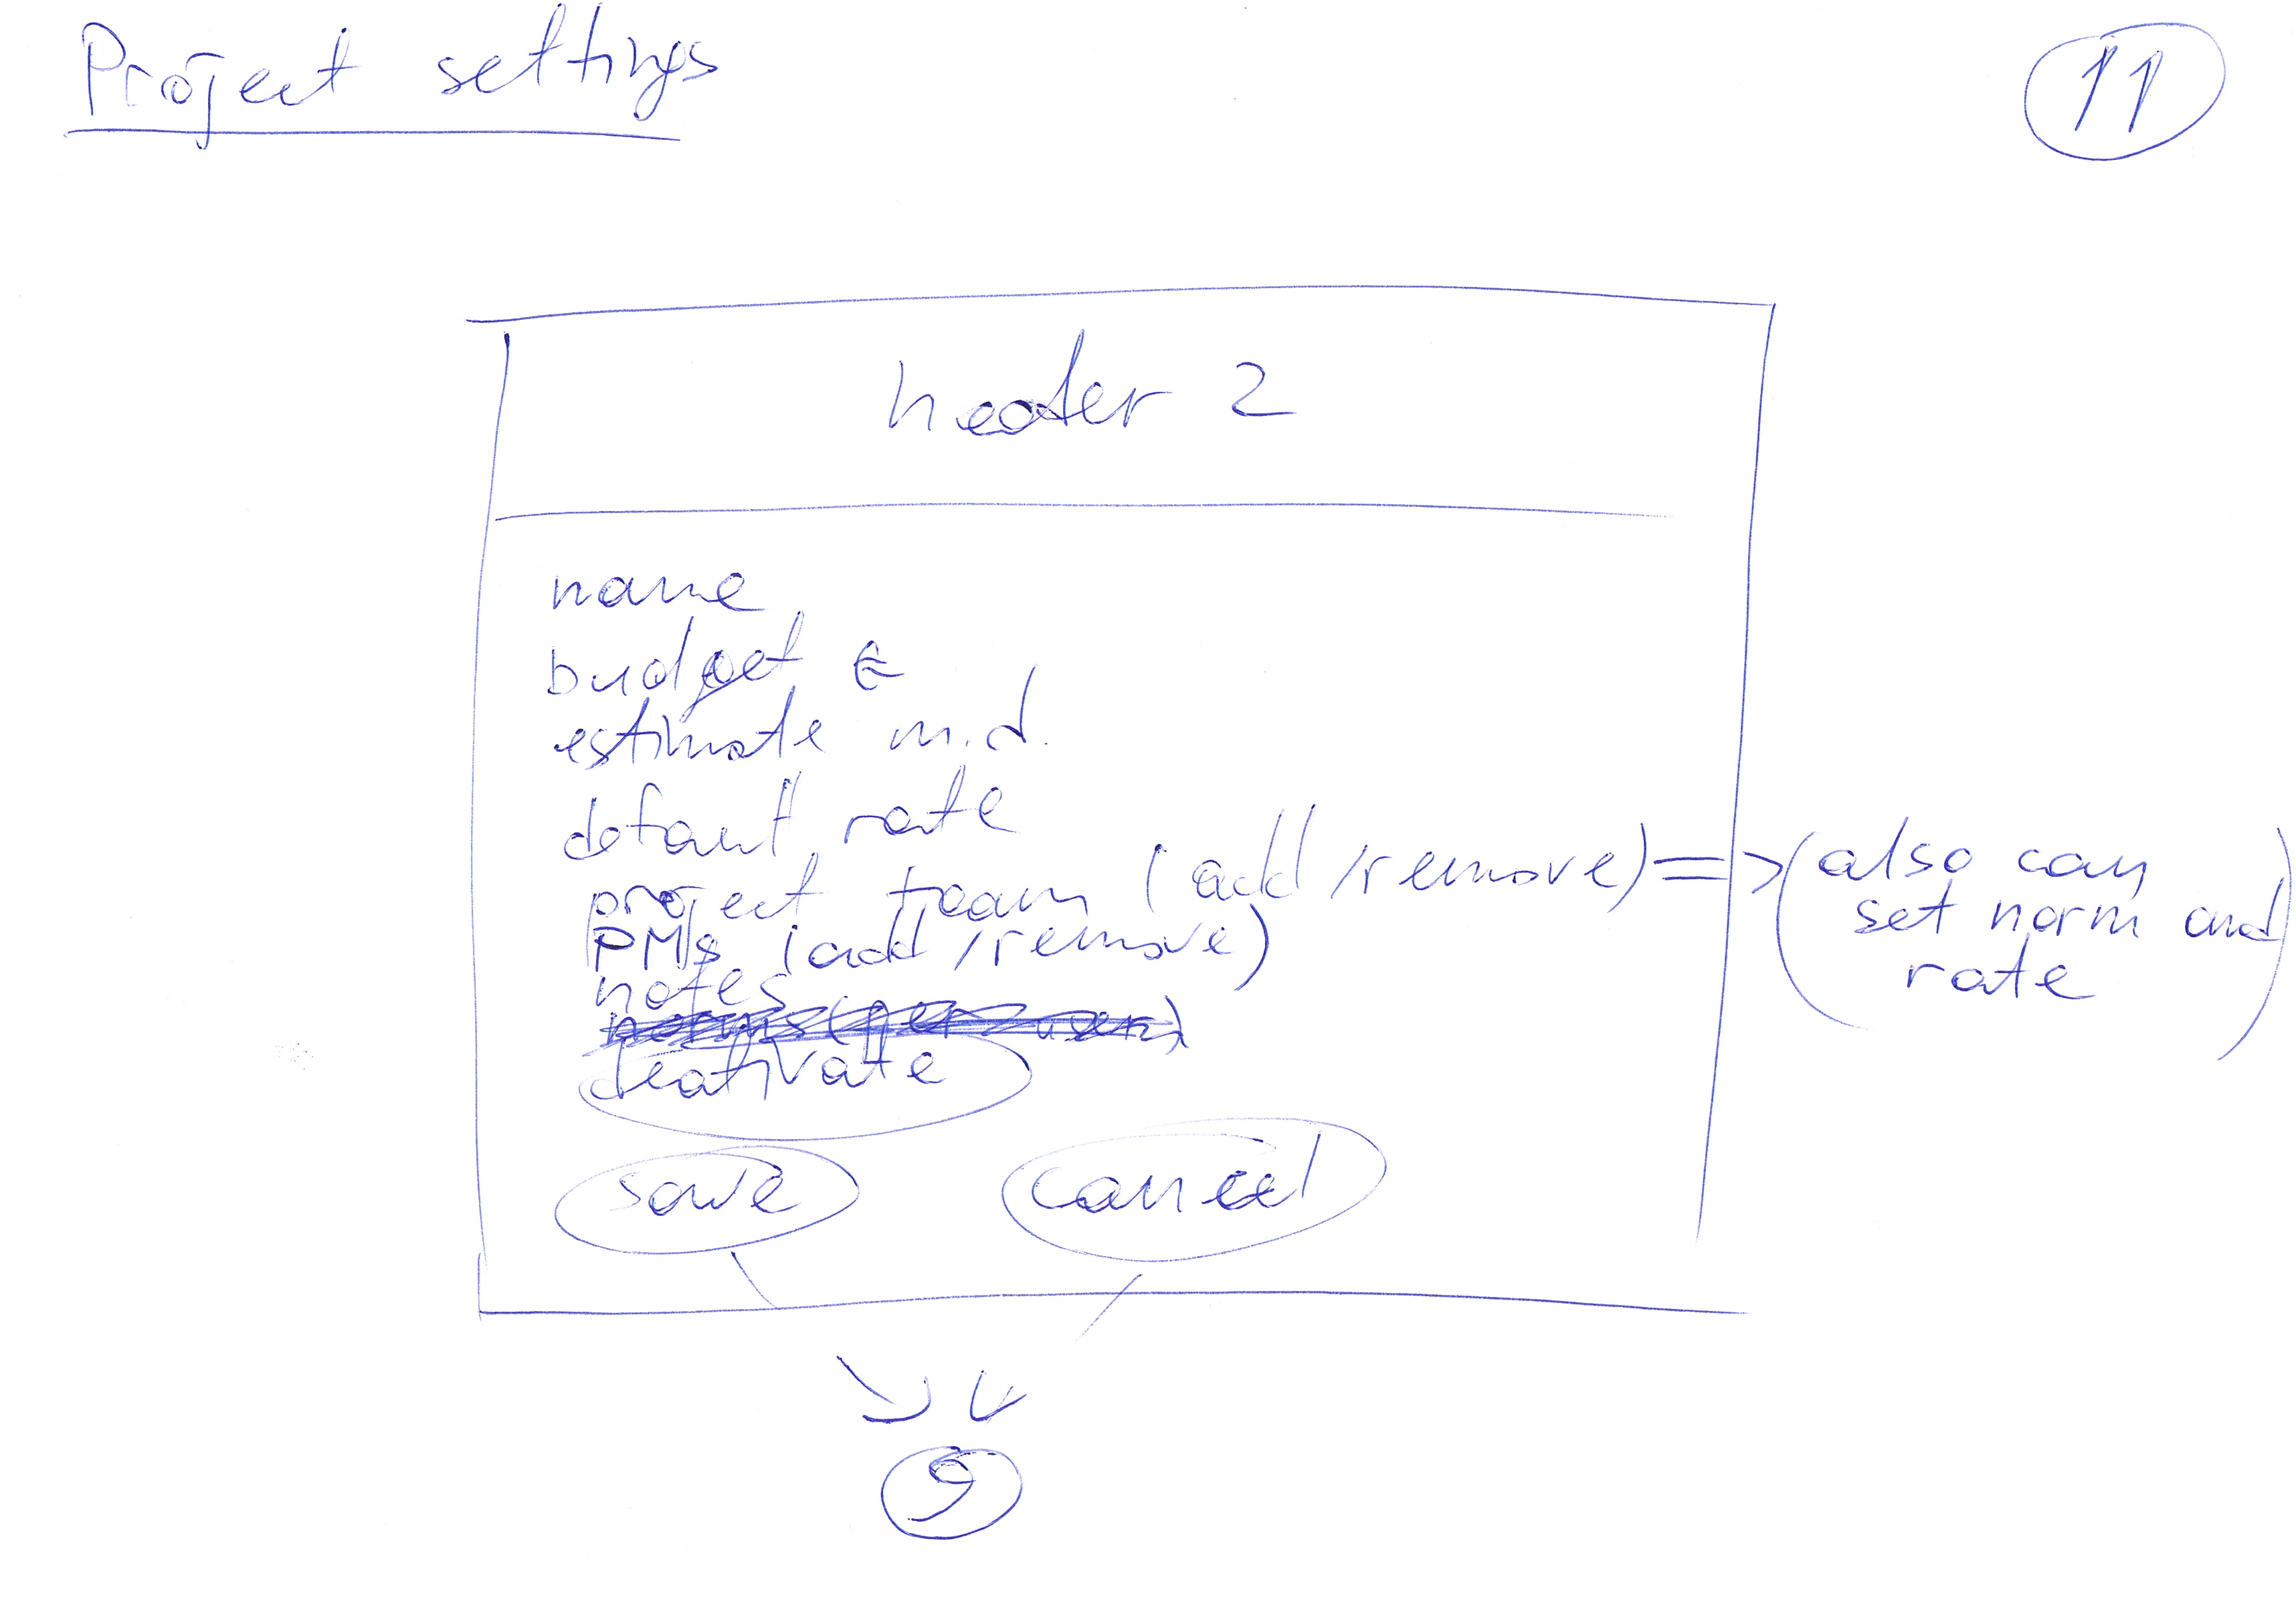 Project settings
11
header 2
name
budget €
estimate m.d.
default rate
project team (add/remove) => (also can
set norm and
rate)
PMs (add/remove)
notes
norms (per user)
deativate
save cancel
9